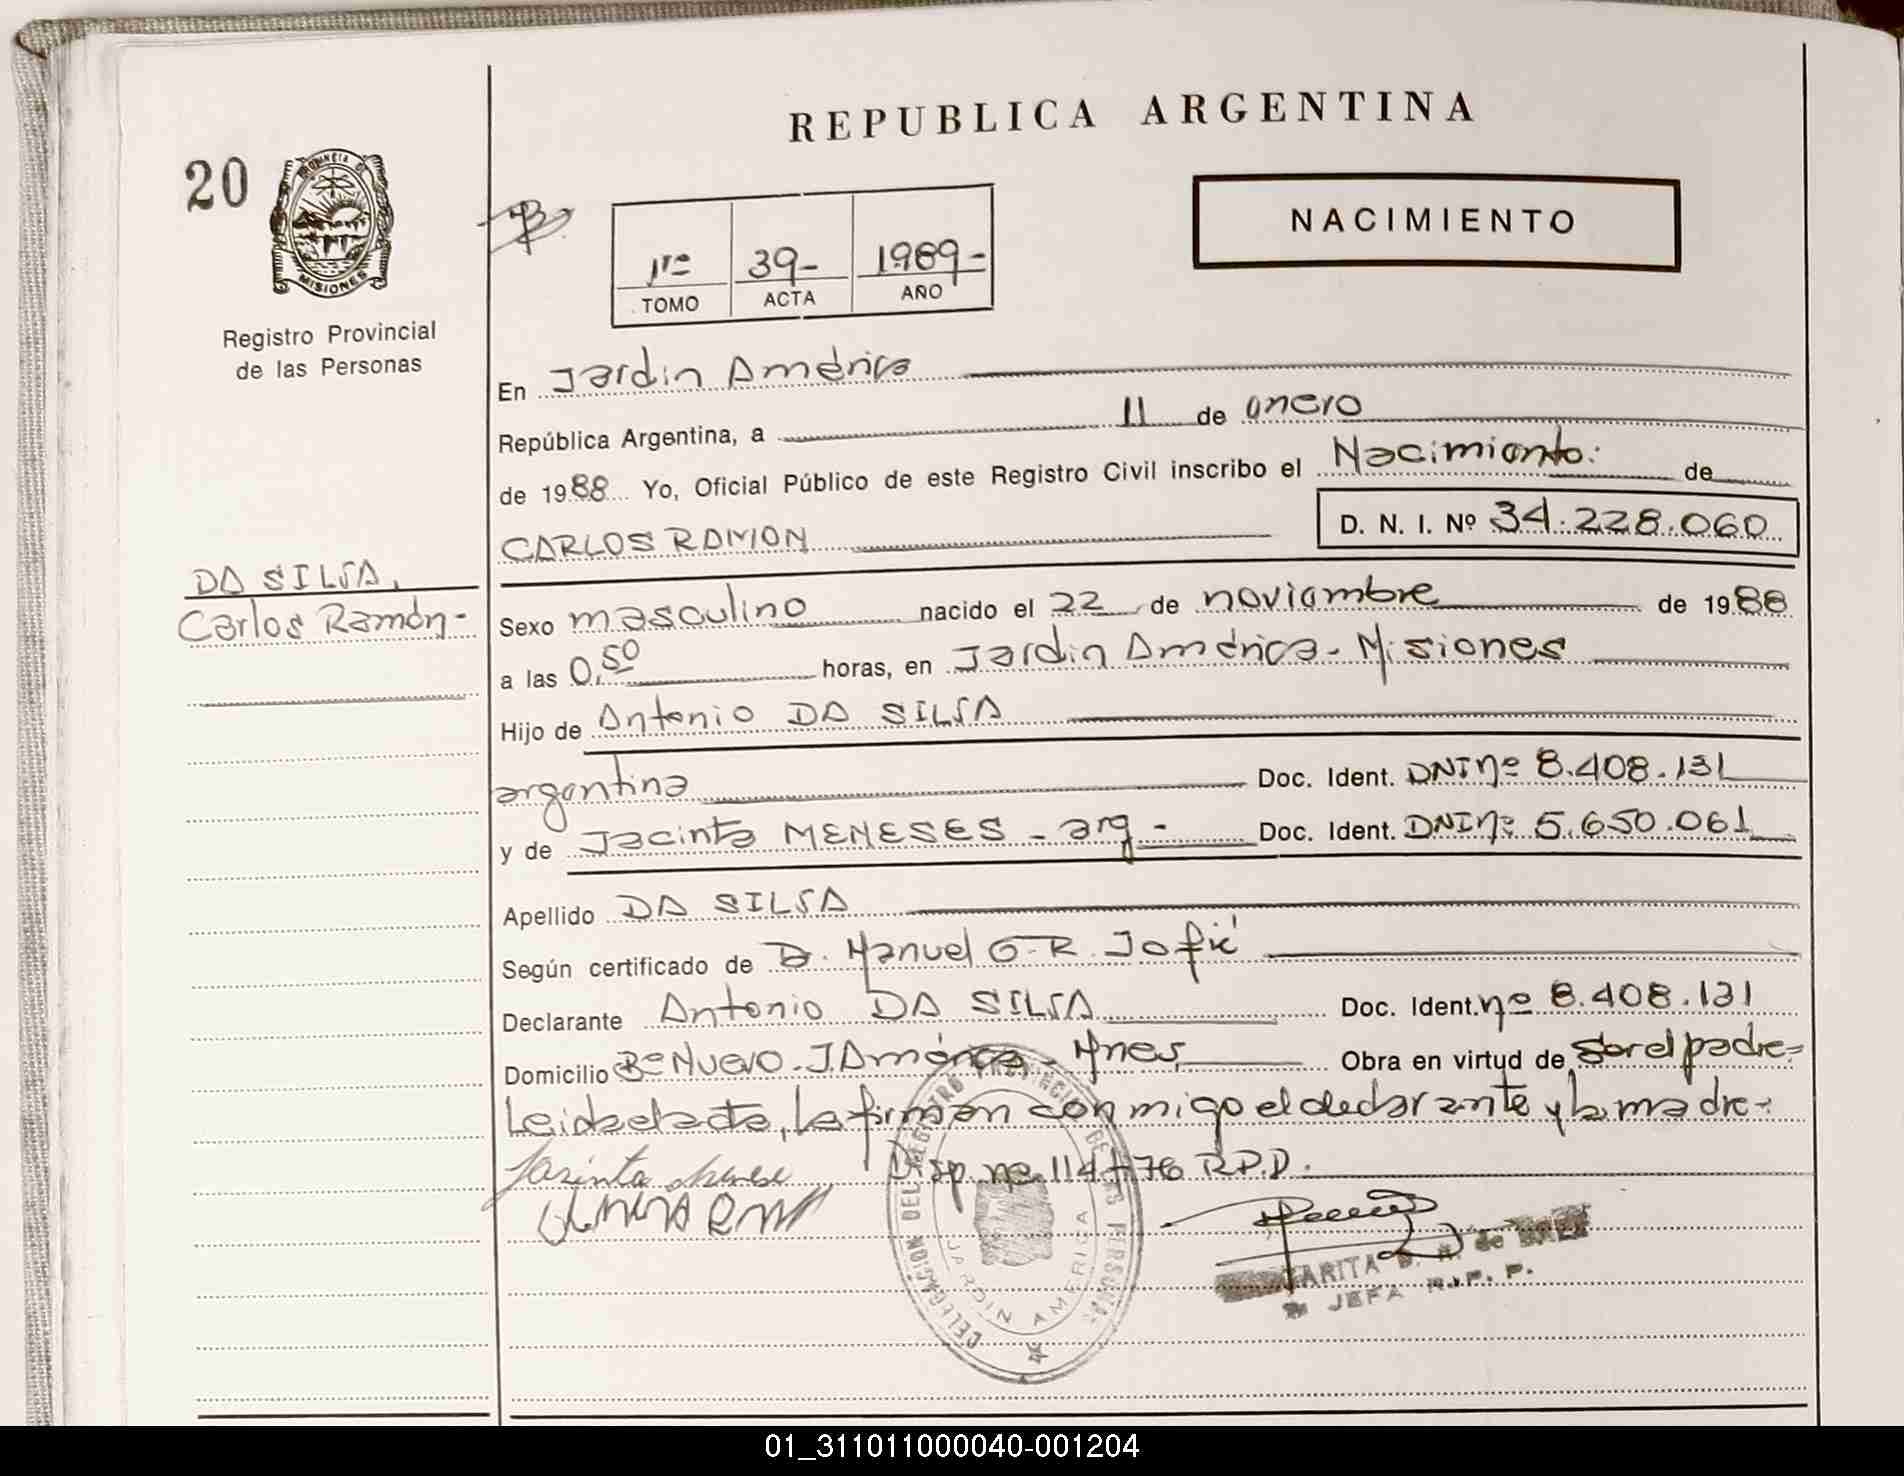 REPUBLICA ARGENTINA
20
PROVINCIA DE
MISIONES
Registro Provincial
de las Personas
NACIMIENTO
1ro 39- 1989-
TOMO ACTA AÑO
En Jardin América
República Argentina, a 11 de enero
de 1988 Yo, Oficial Público de este Registro Civil inscribo el Nacimiento: de
CARLOS RAMON
D. N. I. Nº 34.228.060
DA SILVA,
Carlos Ramón-
Sexo masculino nacido el 22 de noviembre de 1988
a las 0,50 horas, en Jardin América - Misiones
Hijo de Antonio DA SILVA
argentina Doc. Ident. DNI nº 8.408.131
y de Jacinta MENESES - arg - Doc. Ident. DNI nº 5.650.061
Apellido DA SILVA
Según certificado de Dr. Manuel G. R. Jofié
Declarante Antonio DA SILVA Doc. Ident. nº 8.408.131
Domicilio Bº Nuevo - J. América - Mnes, Obra en virtud de ser el padre=
Leida el acta, la firman conmigo el declarante y la madre-
Disp. nº 114/76 R.P.P.
Jasinta
DELEGACION DEL REGISTRO PROVINCIAL DE LAS PERSONAS
JARDIN AMERICA
ARITA de
JEFA R.P.P.
01_311011000040-001204